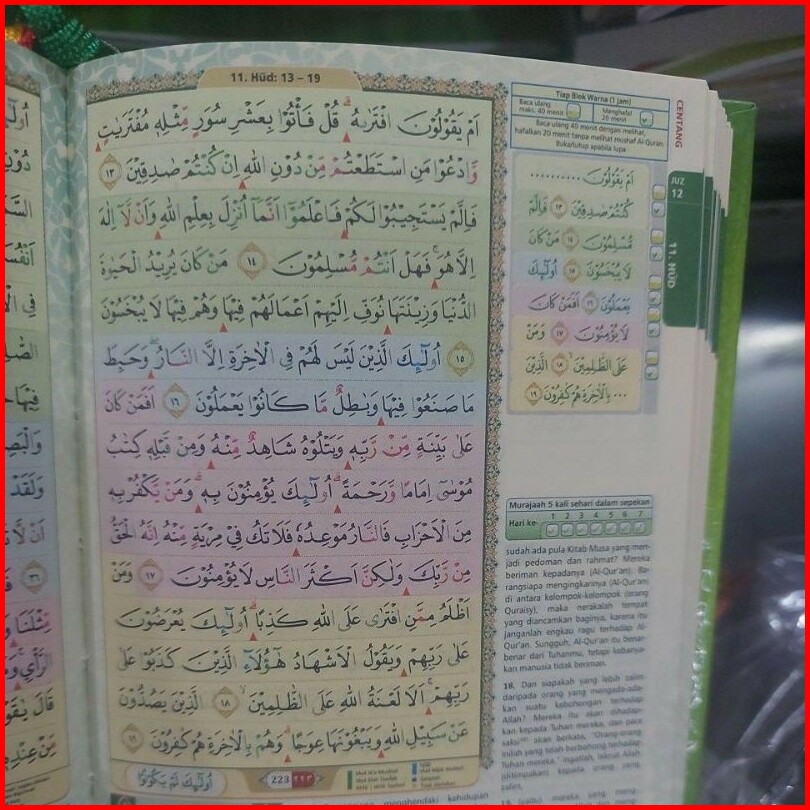 11. Hūd: 13 – 19
اَمْ يَقُوْلُوْنَ افْتَرٰىهُ ۗ قُلْ فَأْتُوْا بِعَشْرِ سُوَرٍ مِّثْلِهٖ مُفْتَرَيٰتٍ
وَّادْعُوْا مَنِ اسْتَطَعْتُمْ مِّنْ دُوْنِ اللّٰهِ اِنْ كُنْتُمْ صٰدِقِيْنَ ١٣
فَاِلَّمْ يَسْتَجِيْبُوْا لَكُمْ فَاعْلَمُوْٓا اَنَّمَآ اُنْزِلَ بِعِلْمِ اللّٰهِ وَاَنْ لَّآ اِلٰهَ
اِلَّا هُوَ ۚ فَهَلْ اَنْتُمْ مُّسْلِمُوْنَ ١٤ مَنْ كَانَ يُرِيْدُ الْحَيٰوةَ
الدُّنْيَا وَزِيْنَتَهَا نُوَفِّ اِلَيْهِمْ اَعْمَالَهُمْ فِيْهَا وَهُمْ فِيْهَا لَا يُبْخَسُوْنَ
١٥ اُولٰۤىِٕكَ الَّذِيْنَ لَيْسَ لَهُمْ فِى الْاٰخِرَةِ اِلَّا النَّارُ ۖ وَحَبِطَ
مَا صَنَعُوْا فِيْهَا وَبٰطِلٌ مَّا كَانُوْا يَعْمَلُوْنَ ١٦ اَفَمَنْ كَانَ
عَلٰى بَيِّنَةٍ مِّنْ رَّبِّهٖ وَيَتْلُوْهُ شَاهِدٌ مِّنْهُ وَمِنْ قَبْلِهٖ كِتٰبُ
مُوْسٰٓى اِمَامًا وَّرَحْمَةً ۗ اُولٰۤىِٕكَ يُؤْمِنُوْنَ بِهٖ ۗ وَمَنْ يَّكْفُرْ بِهٖ
مِنَ الْاَحْزَابِ فَالنَّارُ مَوْعِدُهٗ فَلَا تَكُ فِيْ مِرْيَةٍ مِّنْهُ اِنَّهُ الْحَقُّ
مِنْ رَّبِّكَ وَلٰكِنَّ اَكْثَرَ النَّاسِ لَا يُؤْمِنُوْنَ ١٧ وَمَنْ
اَظْلَمُ مِمَّنِ افْتَرٰى عَلَى اللّٰهِ كَذِبًا ۗ اُولٰۤىِٕكَ يُعْرَضُوْنَ
عَلٰى رَبِّهِمْ وَيَقُوْلُ الْاَشْهَادُ هٰٓؤُلَاۤءِ الَّذِيْنَ كَذَبُوْا عَلٰى
رَبِّهِمْ ۚ اَلَا لَعْنَةُ اللّٰهِ عَلَى الظّٰلِمِيْنَ ۙ ١٨ الَّذِيْنَ يَصُدُّوْنَ
عَنْ سَبِيْلِ اللّٰهِ وَيَبْغُوْنَهَا عِوَجًا ۗ وَهُمْ بِالْاٰخِرَةِ هُمْ كٰفِرُوْنَ ١٩
اُولٰۤىِٕكَ لَمْ يَكُوْنُوْا
223 ٢٢٣
Tiap Blok Warna (1 jam)
Baca ulang maks. 40 menit
Menghafal 20 menit
Baca ulang 40 menit dengan melihat,
hafalkan 20 menit tanpa melihat moshaf Al-Qur'an
Buka/tutup apabila lupa
اَمْ يَقُوْلُوْنَ ..........
كُنْتُمْ صٰدِقِيْنَ ١٣ فَاِلَّمْ
مُّسْلِمُوْنَ ١٤ مَنْ كَانَ
لَا يُبْخَسُوْنَ ١٥ اُولٰۤىِٕكَ
يَعْمَلُوْنَ ١٦ اَفَمَنْ كَانَ
لَا يُؤْمِنُوْنَ ١٧ وَمَنْ
عَلَى الظّٰلِمِيْنَ ۙ ١٨ الَّذِيْنَ
... بِالْاٰخِرَةِ هُمْ كٰفِرُوْنَ ١٩
CENTANG
JUZ
12
11. HŪD
Murajaah 5 kali sehari dalam sepekan
Hari ke- 1 2 3 4 5 6 7
sudah ada pula Kitab Musa yang men-
jadi pedoman dan rahmat? Mereka
beriman kepadanya (Al-Qur'an). Ba-
rangsiapa mengingkarinya (Al-Qur'an)
di antara kelompok-kelompok (orang
Quraisy), maka nerakalah tempat
yang diancamkan baginya, karena itu
janganlah engkau ragu terhadap Al-
Qur'an. Sungguh, Al-Qur'an itu benar-
benar dari Tuhanmu, tetapi kebanya-
kan manusia tidak beriman.
18. Dan siapakah yang lebih zalim
daripada orang yang mengada-ada-
kan suatu kebohongan terhadap
Allah? Mereka itu akan dihadap-
kan kepada Tuhan mereka, dan para
saksi akan berkata, "Orang-orang
inilah yang telah berbohong terhadap
Tuhan mereka." Ingatlah, laknat Allah
(ditimpakan) kepada orang yang
zalim,
menghendaki kehidupan